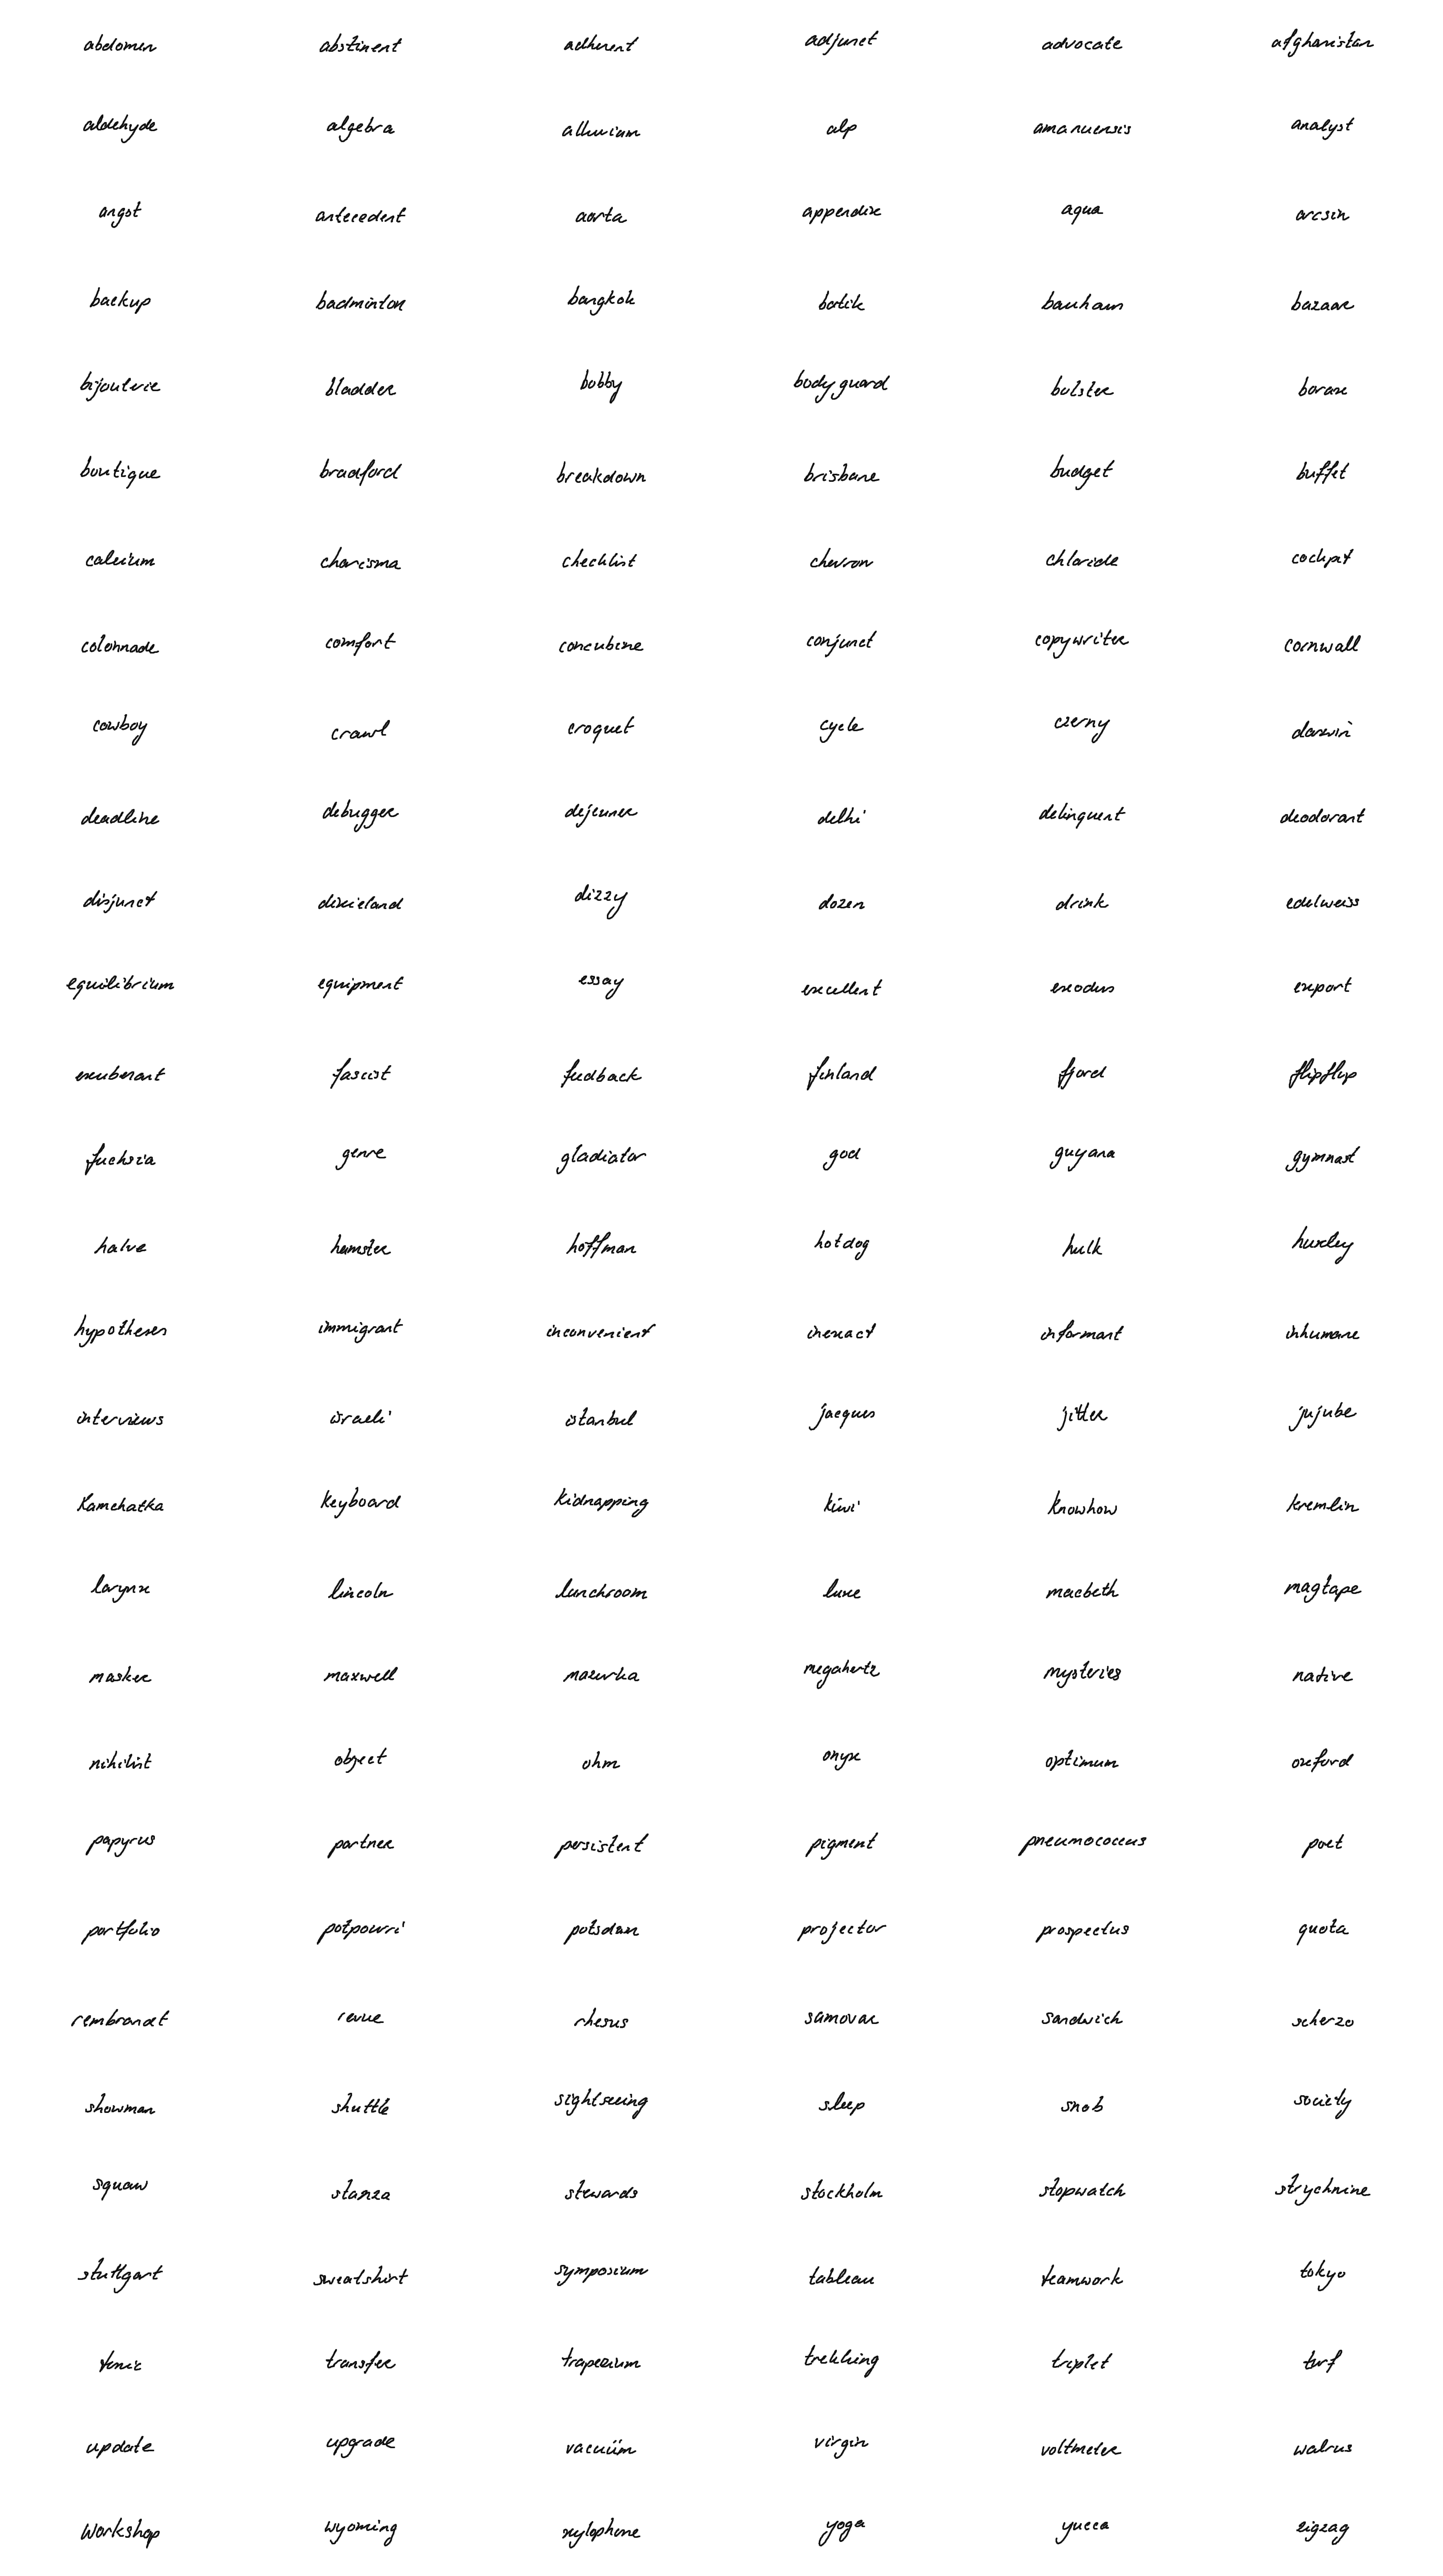 abdomen abstinent adherent adjunct advocate afghanistan
aldehyde algebra alluvium alp amanuensis analyst
angst antecedent aorta appendix aqua arcsin
backup badminton bangkok batik bauhaus bazaar
bijouterie bladder bobby bodyguard bolster borax
boutique bradford breakdown brisbane budget buffet
calcium charisma checklist chevron chloride cockpit
colonnade comfort concubine conjunct copywriter cornwall
cowboy crawl croquet cycle czerny darwin
deadline debugger dejeuner delhi delinquent deodorant
disjunct dixieland dizzy dozen drink edelweiss
equilibrium equipment essay excellent exodus export
exuberant fascist feedback finland fjord flipflop
fuchsia genre gladiator god guyana gymnast
halve hamster hoffman hotdog hulk huxley
hypotheses immigrant inconvenient inexact informant inhumane
interviews israeli istanbul jacques jitter jujube
kamchatka keyboard kidnapping kiwi knowhow kremlin
larynx lincoln lunchroom luxe macbeth magtape
masker maxwell mazurka megahertz mysteries native
nihilist object ohm onyx optimum oxford
papyrus partner persistent pigment pneumococcus poet
portfolio potpourri potsdam projector prospectus quota
rembrandt revue rhesus samovar sandwich scherzo
showman shuttle sightseeing sleep snob society
squaw stanza stewards stockholm stopwatch strychnine
stuttgart sweatshirt symposium tableau teamwork tokyo
tonic transfer trapezium trekking triplet turf
update upgrade vacuüm virgin voltmeter walrus
workshop wyoming xylophone yoga yucca zigzag